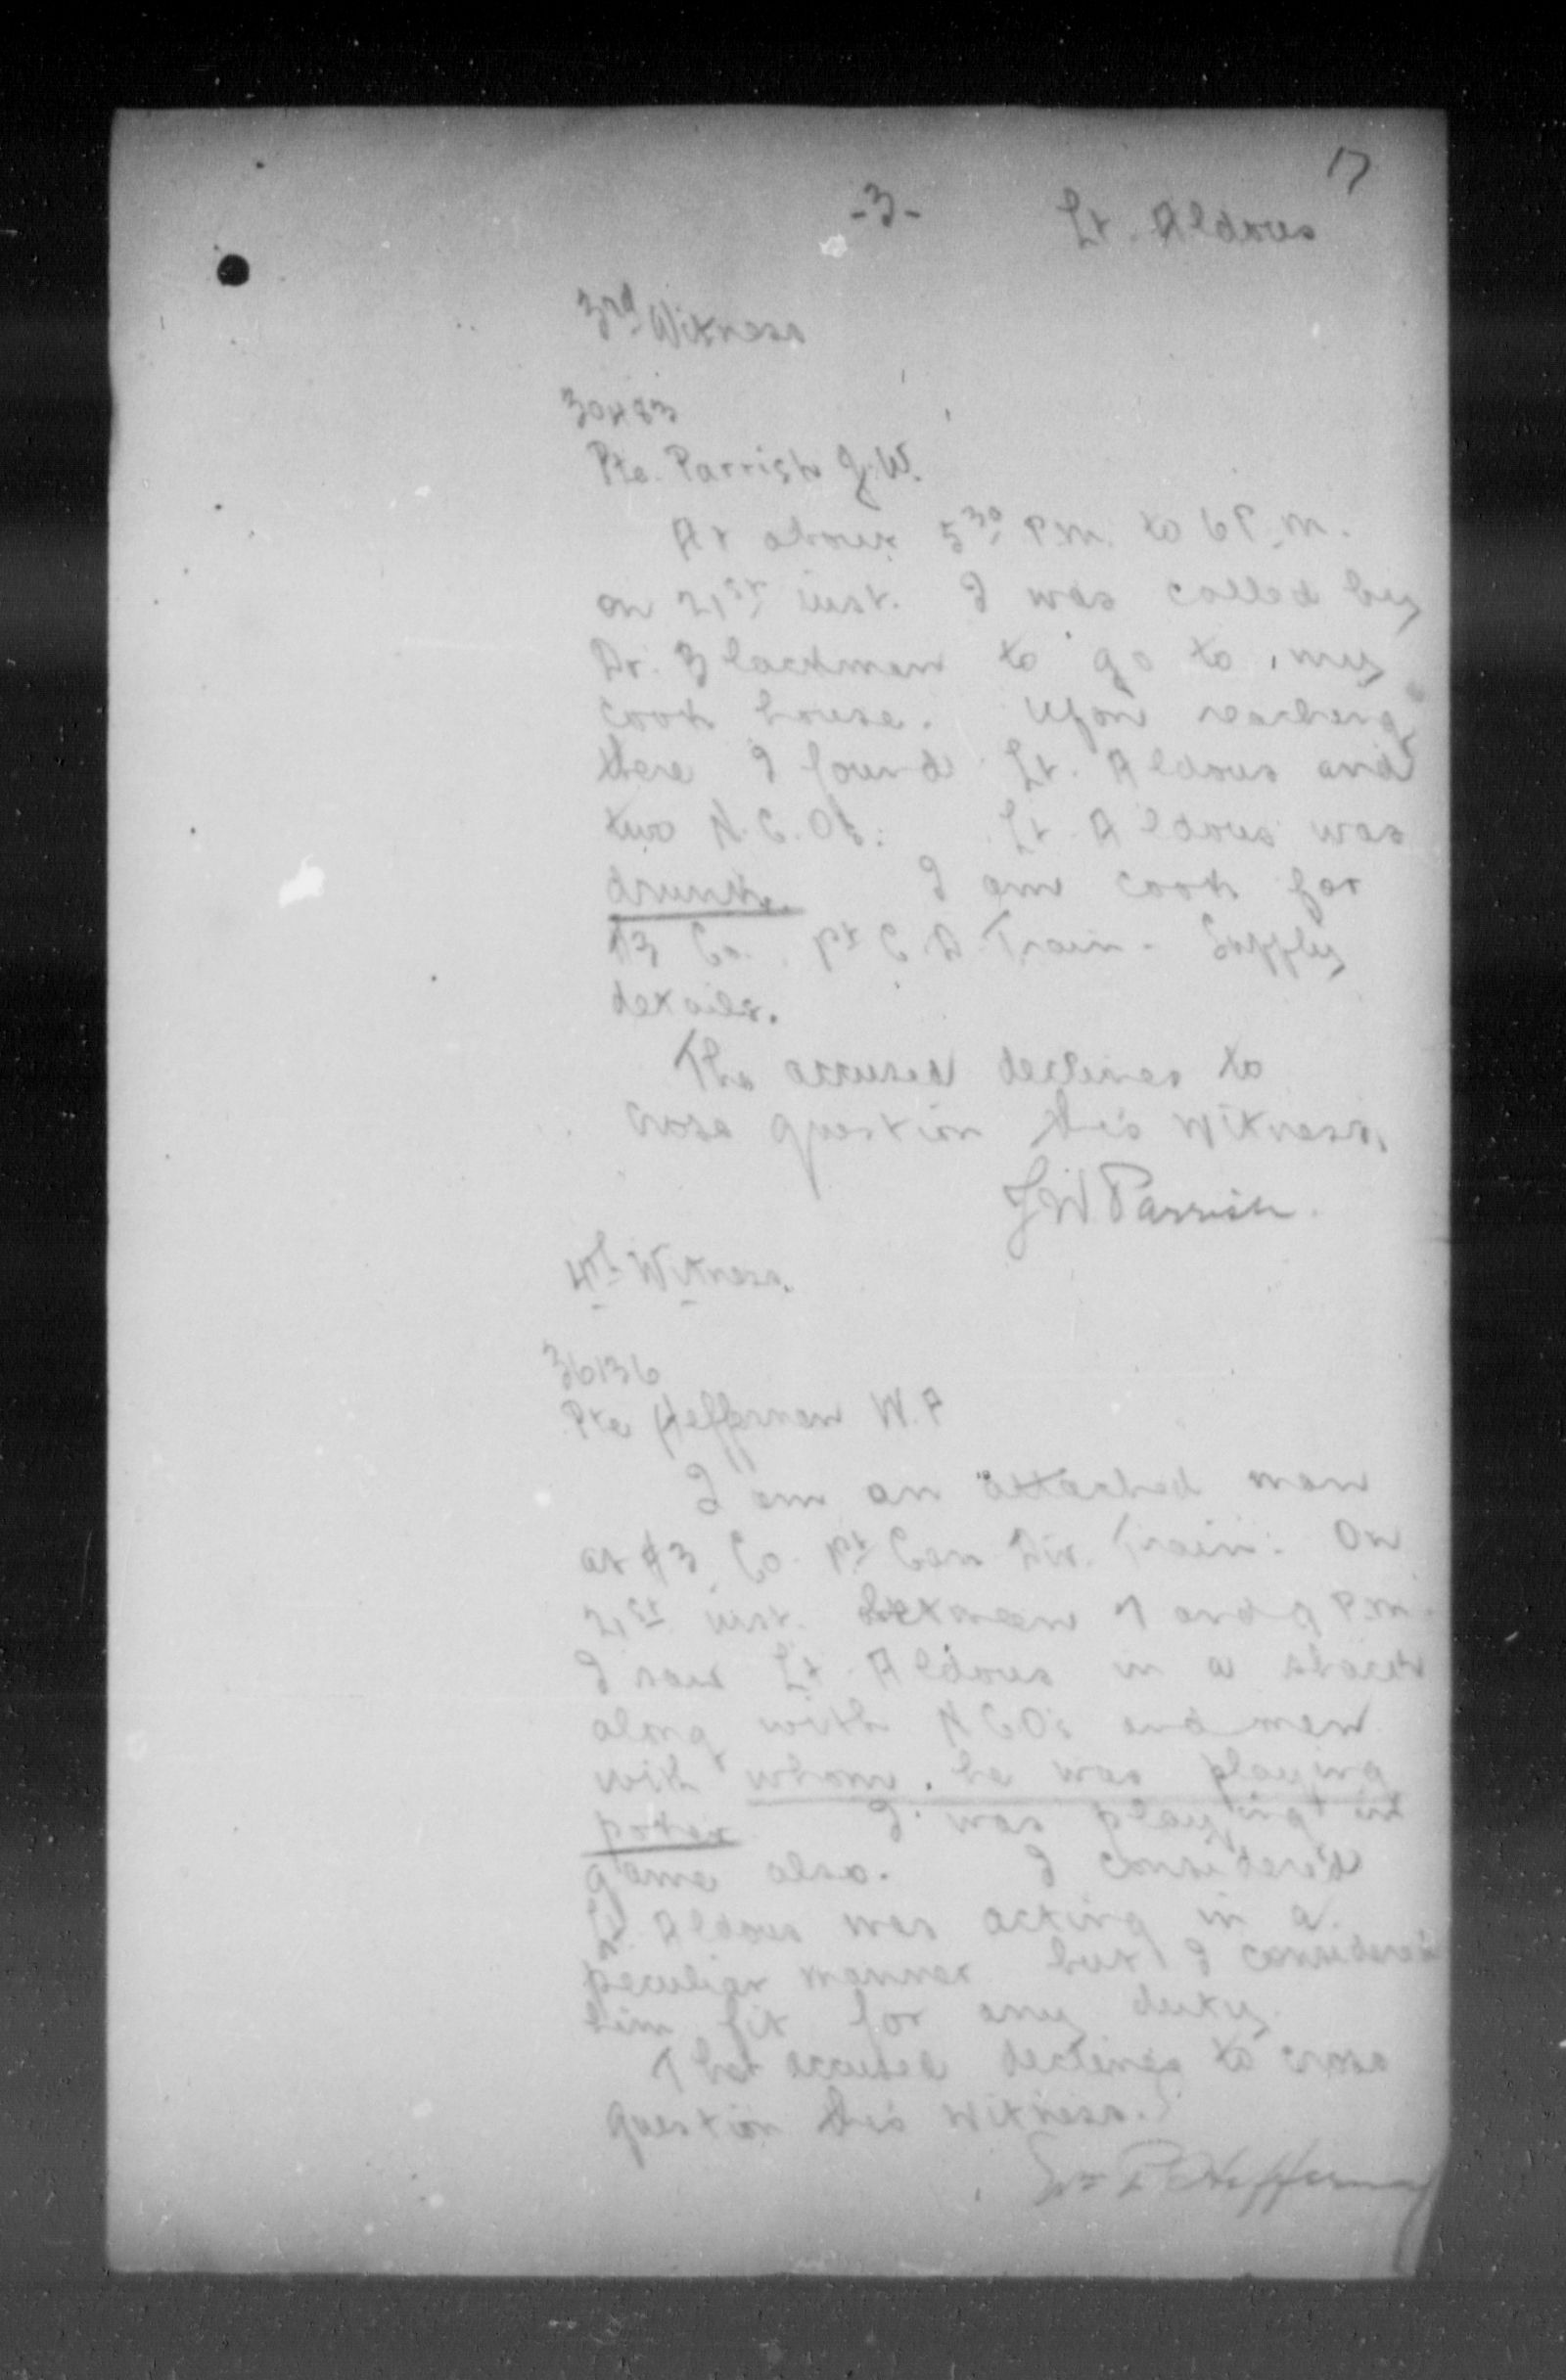 17
-3-
Lt. Aldous
3rd Witness
30483
Pte. Parrish J.W.
At about 5 30 P.M. to 6 P.M.
on 21st inst. I was called by
Dr. Blackman to go to my
cook house. Upon reaching
there I found Lt. Aldous and
two N.C.O's. Lt. Aldous was
drunk. I am cook for
#3 Co. 1st C.D. Train. Supply
details.
The accused declines to
cross question this witness.
JW Parrish.
4th Witness.
36136
Pte Heffernan W.P
I am an attached man
at #3 Co. 1st Can Div. Train. On
21st inst. between 7 and 9 P.M.
I saw Lt. Aldous in a shack
along with NCO's and men
with whom he was playing
poker I was playing in
game also. I considered
Lt. Aldous was acting in a
peculiar manner but I considered
him fit for any duty.
The accused declines to cross
question this witness.
Wm P Heffernan